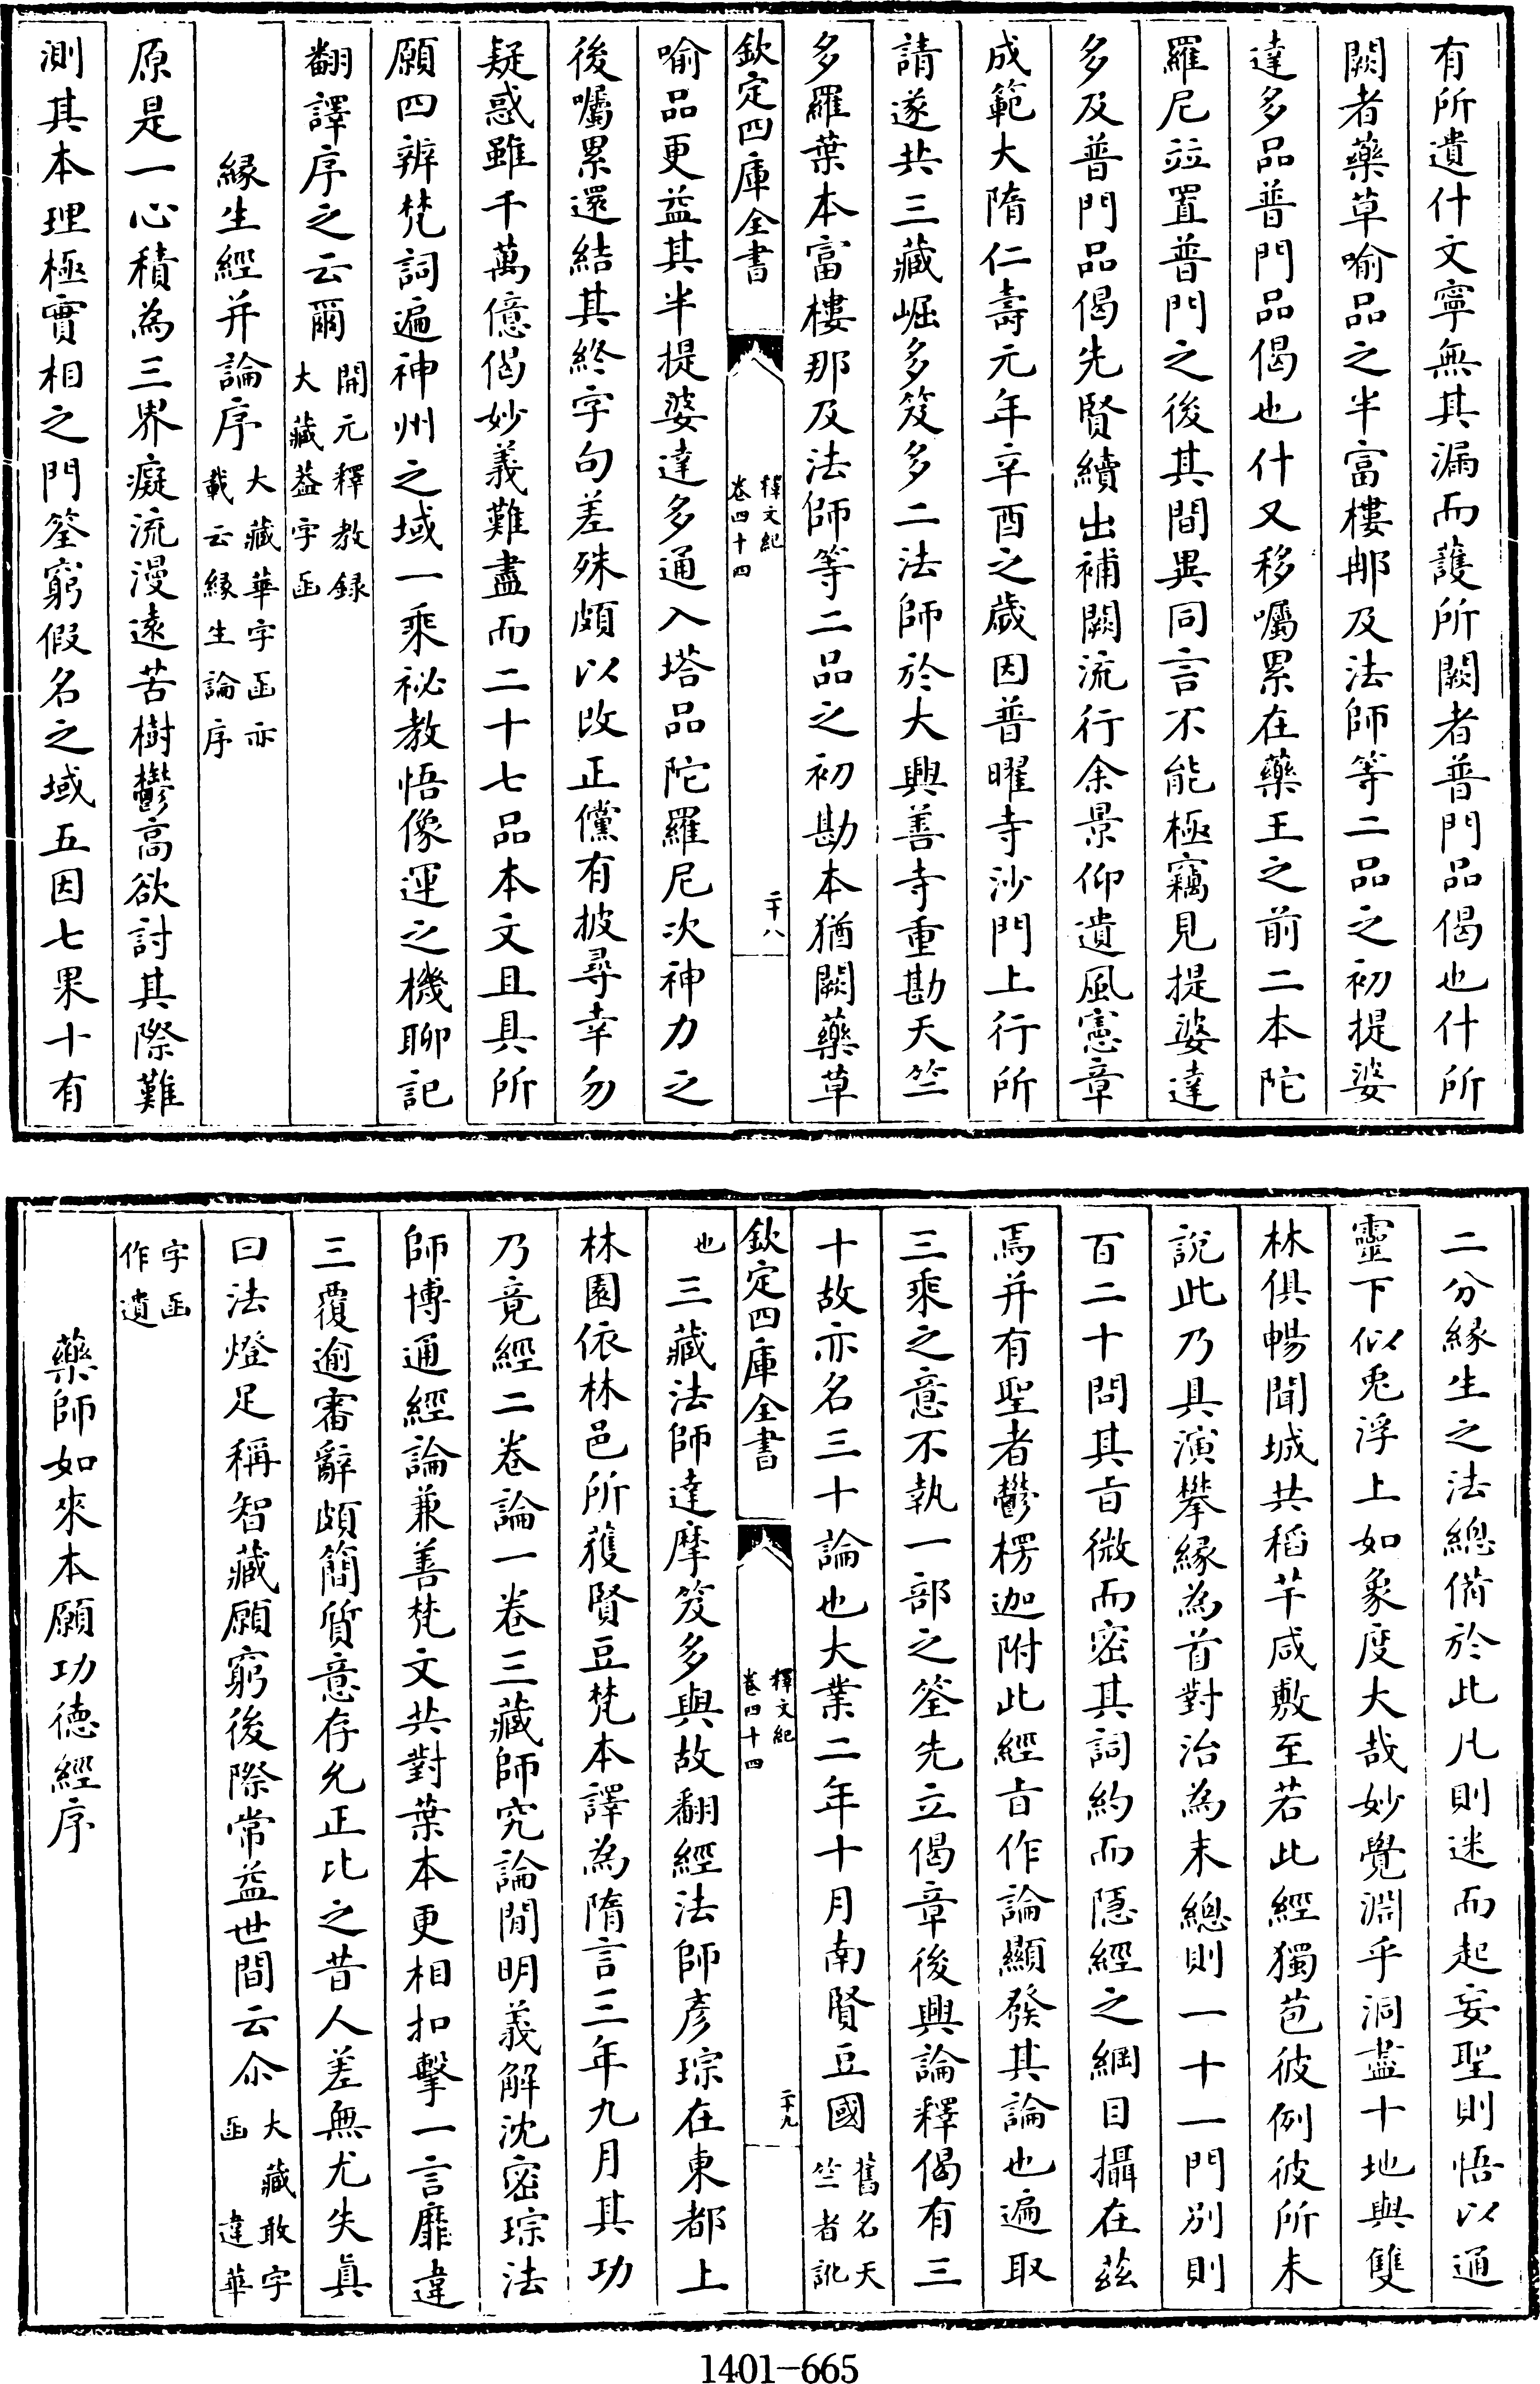 有所遺什文寧無其漏而護所闕者普門品偈也什所
闕者藥草喻品之半富樓那及法師等二品之初提婆
達多品普門品偈也什又移囑累在藥王之前二本陀
羅尼竝置普門之後其間異同言不能極竊見提婆達
多及普門品偈先賢續出補闕流行余景仰遺風憲章
成範大隋仁壽元年辛酉之歲因普曜寺沙門上行所
請遂共三藏崛多笈多二法師於大興善寺重勘天竺
多羅葉本富樓那及法師等二品之初勘本猶闕藥草
欽定四庫全書
釋文紀
卷四十四
二十八
喻品更益其半提婆達多通入塔品陀羅尼次神力之
後囑累還結其終字句差殊頗以改正儻有披尋幸勿
疑惑雖千萬億偈妙義難盡而二十七品本文且具所
願四辨梵詞遍神州之域一乘祕教悟像運之機聊記
翻譯序之云爾開元釋教録
大藏葢字函
緣生經并論序大藏華字函亦
載云緣生論序
原是一心積為三界癡流漫遠苦樹鬱高欲討其際難
測其本理極實相之門筌窮假名之域五因七果十有
二分緣生之法總備於此凡則迷而起妄聖則悟以通
靈下似兎浮上如象度大哉妙覺淵乎洞盡十地與雙
林俱暢聞城共稻芉咸敷至若此經獨苞彼例彼所未
說此乃具演攀緣為首對治為末總則一十一門別則
百二十問其㫖微而密其詞約而隱經之綱目攝在茲
焉并有聖者鬱楞迦附此經㫖作論顯發其論也遍取
三乘之意不執一部之筌先立偈章後興論釋偈有三
十故亦名三十論也大業二年十月南賢豆國舊名天
竺者訛
欽定四庫全書
釋文紀
卷四十四
二十九
也三藏法師達摩笈多與故翻經法師彥琮在東都上
林園依林邑所獲賢豆梵本譯為隋言三年九月其功
乃竟經二卷論一卷三藏師究論閒明義解沈密琮法
師博通經論兼善梵文共對葉本更相扣擊一言靡違
三覆逾審辭頗簡質意存允正比之昔人差無尤失真
曰法燈足稱智藏願窮後際常益世間云尒大藏敢字
函違華
字函
作遺
藥師如來本願功德經序
1401-665